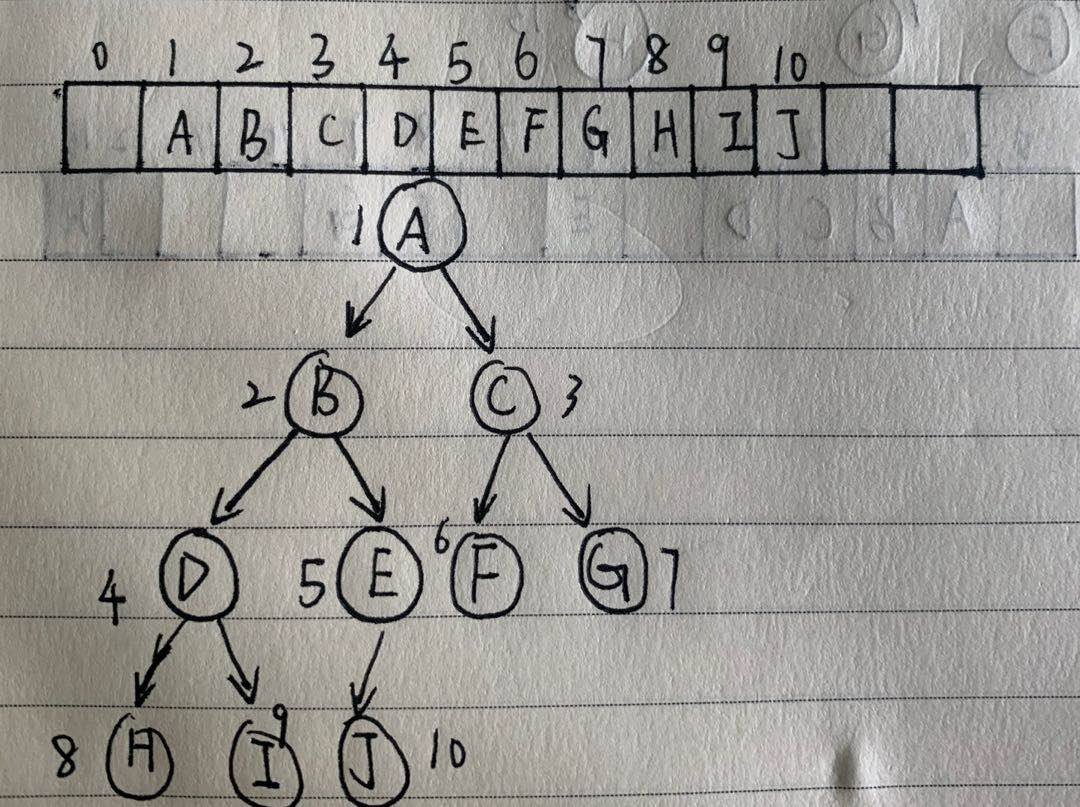 0 1 2 3 4 5 6 7 8 9 10
A B C D E F G H I J
1 A
2 B C 3
4 D 5 E 6 F G 7
8 H I 9 J 10